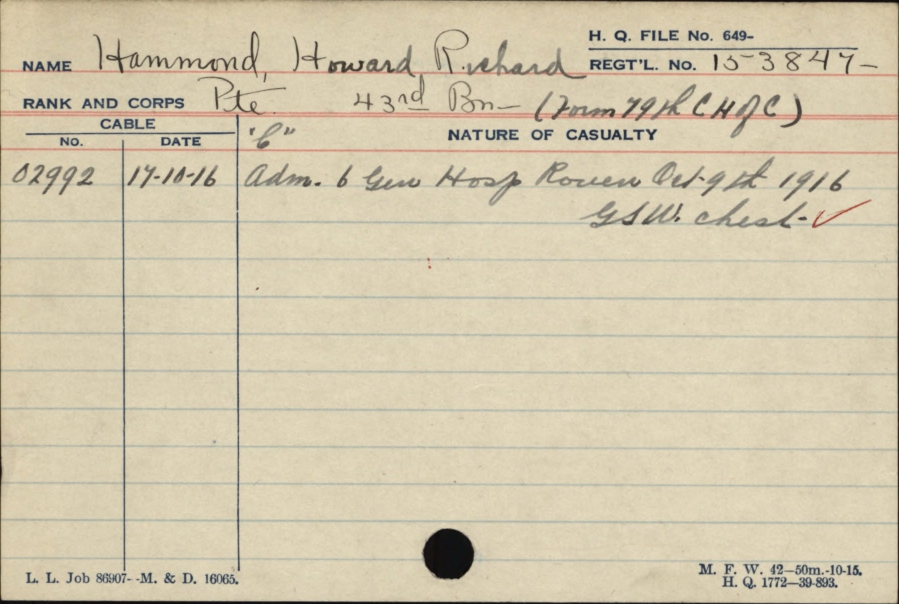 H. Q. FILE No. 649-
NAME Hammond, Howard Richard REGT'L. No. 153847-
RANK AND CORPS Pte. 43rd Bn- (Form 79th C H of C)
CABLE "C" NATURE OF CASUALTY
NO. DATE
02992 17-10-16 Adm. 6 Gen Hosp Rouen Oct. 9th 1916
GSW. chest-
L. L. Job 86907--M. & D. 16065.
M. F. W. 42—50m.-10-15.
H. Q. 1772—39-893.